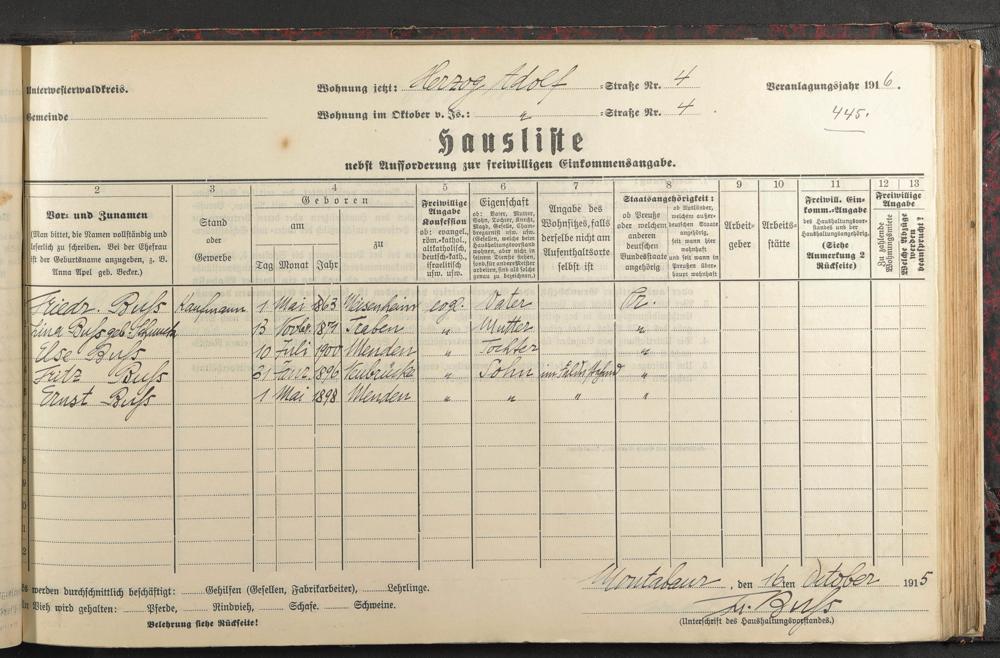 Unterwesterwaldkreis.
Wohnung jetzt: Herzog Adolf =Straße Nr. 4
Veranlagungsjahr 1916.
Gemeinde
Wohnung im Oktober v. Js.: " =Straße Nr. 4
445.
Hausliste
nebst Aufforderung zur freiwilligen Einkommensangabe.
2 3 4 5 6 7 8 9 10 11 12 13
Vor- und Zunamen
(Man bittet, die Namen vollständig und leserlich zu schreiben. Bei der Ehefrau ist der Geburtsname anzugeben, z. B. Anna Apel geb. Becker.)
Stand oder Gewerbe
Geboren
am
zu
Tag Monat Jahr
Freiwillige Angabe Konfession
ob: evangel., röm.-kathol., altkatholisch, deutsch-kath., israelitisch usw. usw.
Eigenschaft
ob: Vater, Mutter, Sohn, Tochter, Knecht, Magd, Geselle,
Angabe des Wohnsitzes, falls derselbe nicht am Aufenthaltsorte selbst ist
Staatsangehörigkeit:
ob Preuße oder welchem anderen deutschen Bundesstaate angehörig
ob Ausländer, welchem außerdeutschen Staate angehörig, seit wann hier wohnhaft und seit wann in Preußen überhaupt wohnhaft
Arbeitgeber
Arbeitsstätte
Freiwill. Einkomm.-Angabe
des Haushaltungsvorstandes und der Haushaltungsangehörig.
(Siehe Anmerkung 2 Rückseite)
Freiwillige Angabe
Zu zahlende Wohnungsmiete
Welche Abzüge werden beansprucht?
Friedr. Buss Kaufmann 1 Mai 1863 Meisenheim evgl. Vater Pr.
Buss geb. 13 Novbr. 1871 Traben " Mutter "
Else Buss 10 Juli 1900 Menden " Tochter "
Fritz Buss 31 Janr. 1896 Sohn "
Ernst Buss 1 Mai 1898 Menden " " " "
Es werden durchschnittlich beschäftigt: Gehilfen (Gesellen, Fabrikarbeiter), Lehrlinge.
An Vieh wird gehalten: Pferde, Rindvieh, Schafe. Schweine.
Belehrung siehe Rückseite!
Montabaur, den 16ten October 1915
Fr. Buss
(Unterschrift des Haushaltungsvorstandes.)